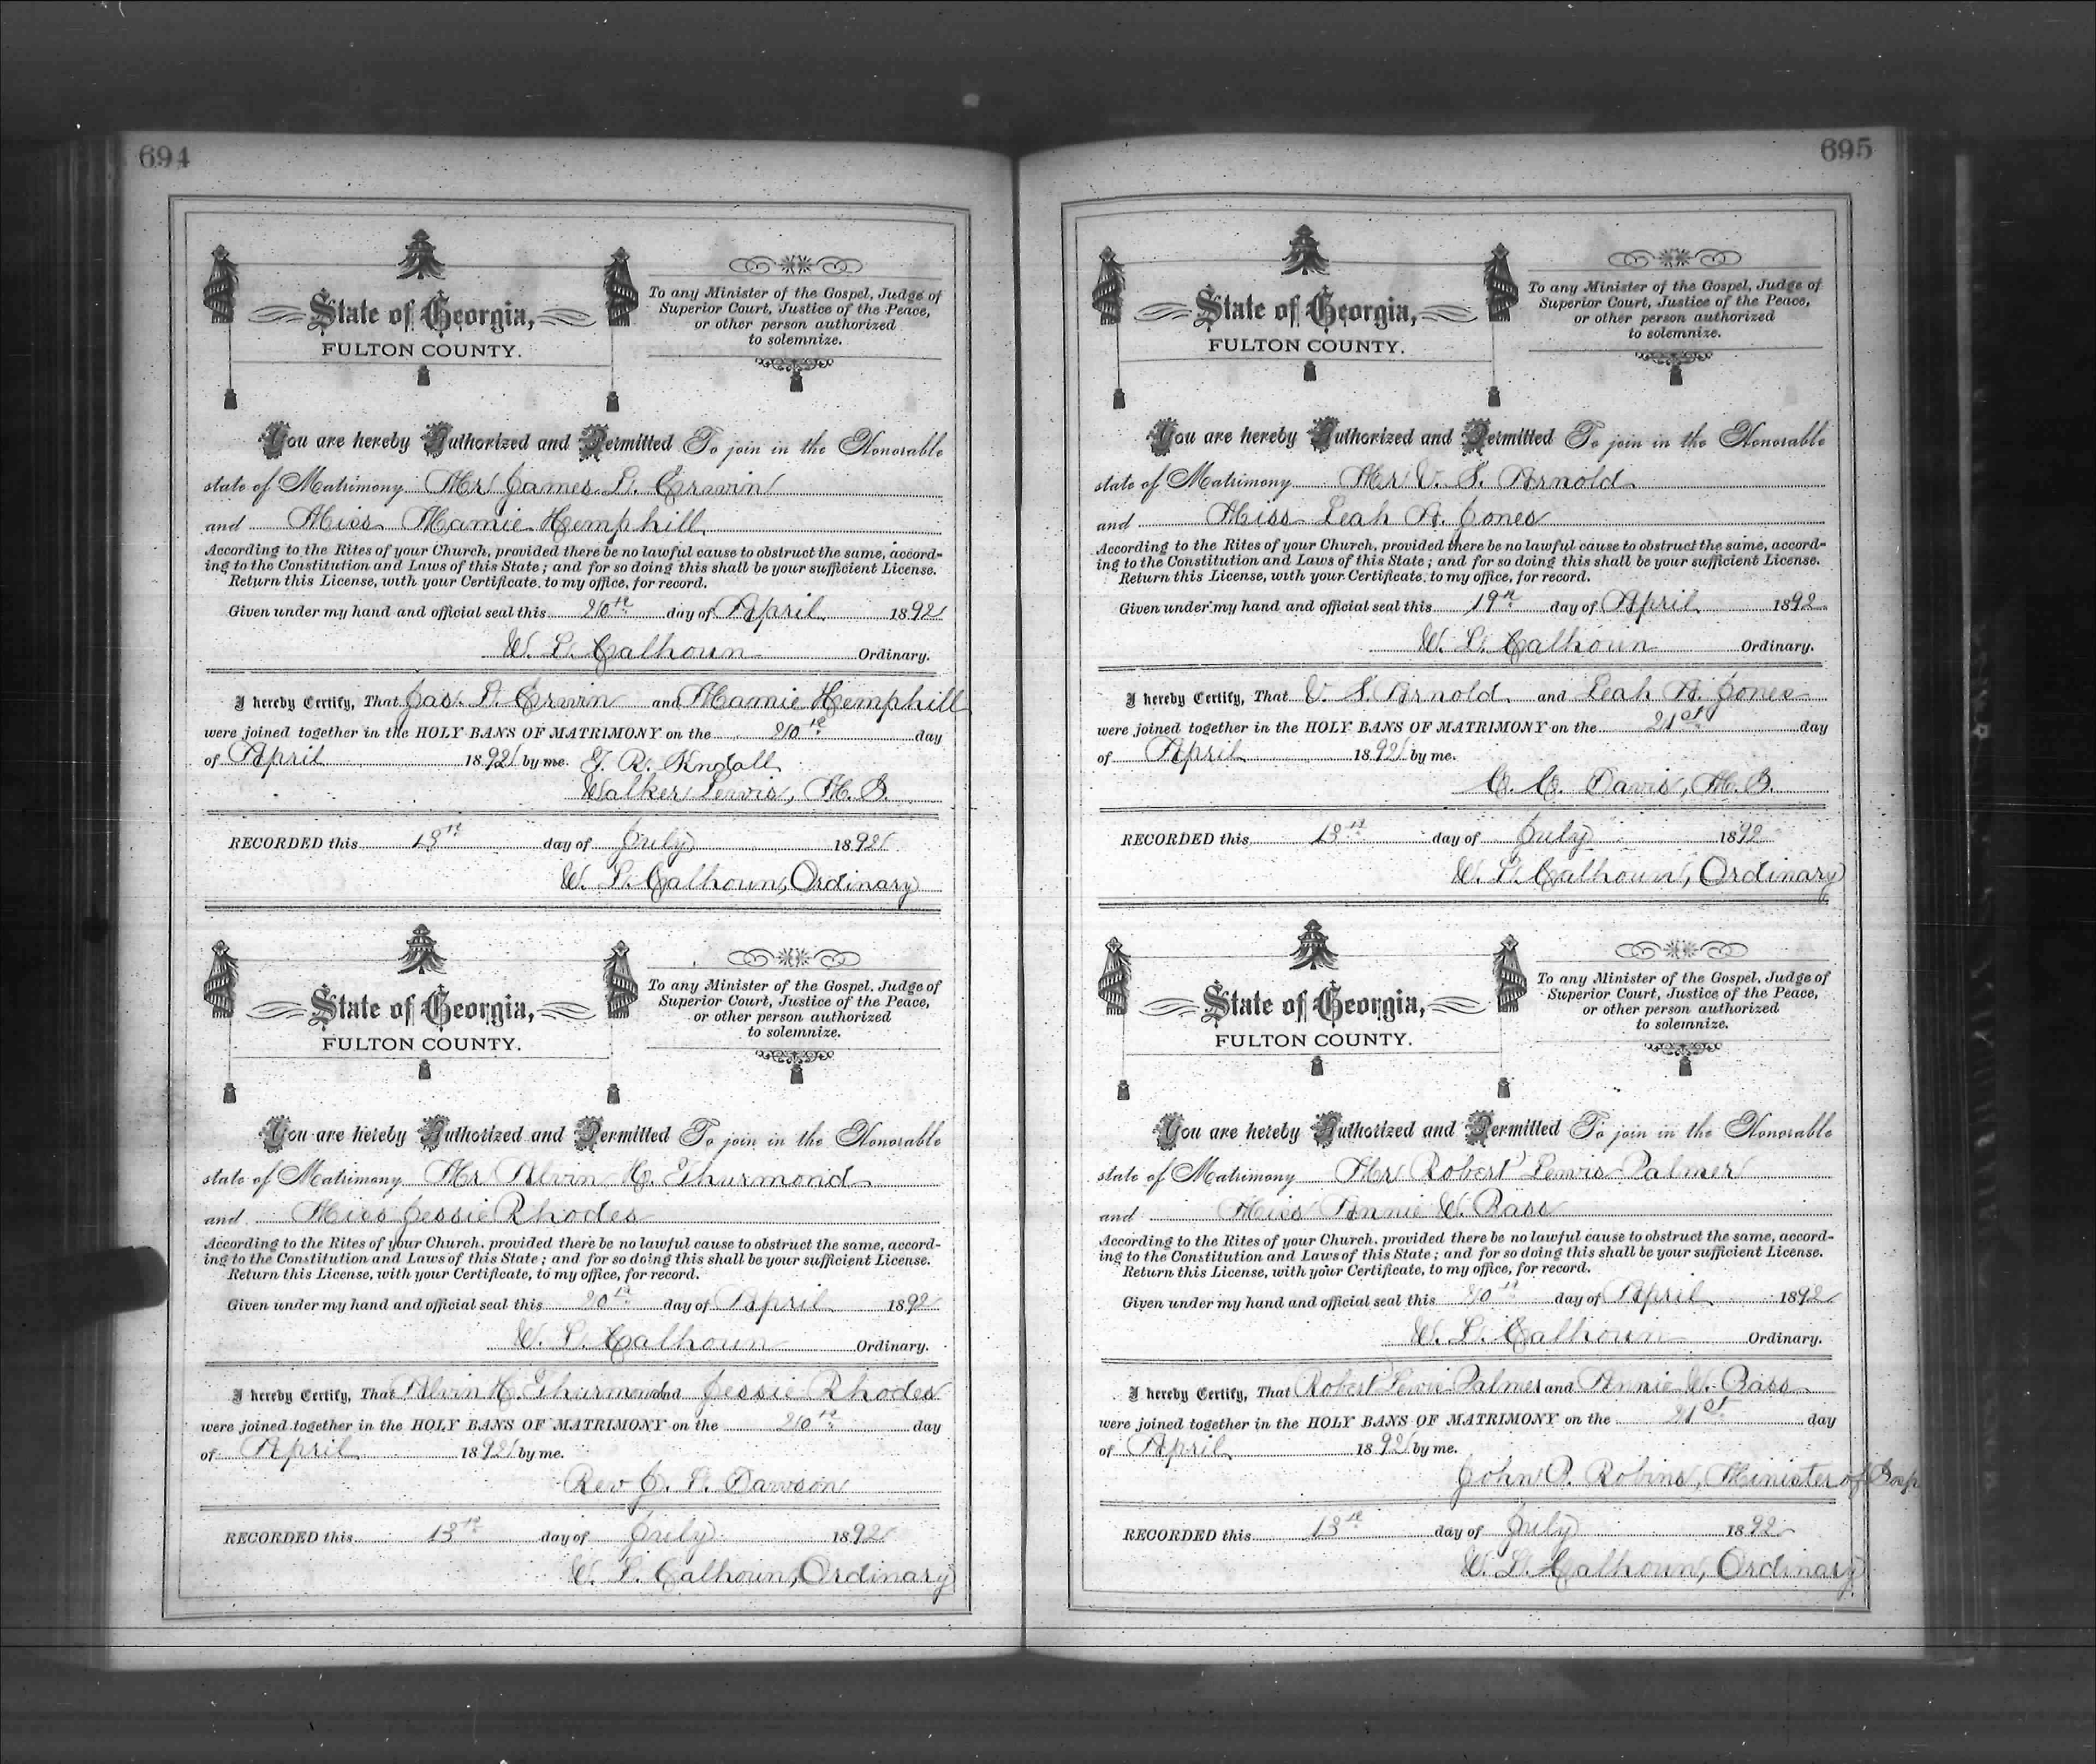 694
State of Georgia,
FULTON COUNTY.
To any Minister of the Gospel, Judge of
Superior Court, Justice of the Peace,
or other person authorized
to solemnize.
You are hereby Authorized and Permitted To join in the Honorable
state of Matrimony Mr James D. Erwin
and Miss Mamie Hemphill
According to the Rites of your Church, provided there be no lawful cause to obstruct the same, accord-
ing to the Constitution and Laws of this State; and for so doing this shall be your sufficient License.
Return this License, with your Certificate, to my office, for record.
Given under my hand and official seal this 20th day of April 1892
W. L. Calhoun Ordinary.
I hereby Certify, That Jas. D. Erwin and Mamie Hemphill
were joined together in the HOLY BANS OF MATRIMONY on the 20th day
of April 1892 by me. T. R. Kendall
Walker Lewis, M. G.
RECORDED this 13th day of July 1892
W. L. Calhoun, Ordinary
State of Georgia,
FULTON COUNTY.
To any Minister of the Gospel, Judge of
Superior Court, Justice of the Peace,
or other person authorized
to solemnize.
You are hereby Authorized and Permitted To join in the Honorable
state of Matrimony Mr Alvin H. Thurmond
and Miss Jessie Rhodes
According to the Rites of your Church, provided there be no lawful cause to obstruct the same, accord-
ing to the Constitution and Laws of this State; and for so doing this shall be your sufficient License.
Return this License, with your Certificate, to my office, for record.
Given under my hand and official seal this 20th day of April 1892
W. L. Calhoun Ordinary.
I hereby Certify, That Alvin H. Thurmond and Jessie Rhodes
were joined together in the HOLY BANS OF MATRIMONY on the 20th day
of April 1892 by me.
Rev J. F. Dawson
RECORDED this 13th day of July 1892
W. L. Calhoun, Ordinary
695
State of Georgia,
FULTON COUNTY.
To any Minister of the Gospel, Judge of
Superior Court, Justice of the Peace,
or other person authorized
to solemnize.
You are hereby Authorized and Permitted To join in the Honorable
state of Matrimony Mr V. S. Arnold
and Miss Leah A. Jones
According to the Rites of your Church, provided there be no lawful cause to obstruct the same, accord-
ing to the Constitution and Laws of this State; and for so doing this shall be your sufficient License.
Return this License, with your Certificate, to my office, for record.
Given under my hand and official seal this 19th day of April 1892
W. L. Calhoun Ordinary.
I hereby Certify, That V. S. Arnold and Leah A. Jones
were joined together in the HOLY BANS OF MATRIMONY on the 21st day
of April 1892 by me.
C. C. Davis, M. G.
RECORDED this 13th day of July 1892
W. L. Calhoun, Ordinary
State of Georgia,
FULTON COUNTY.
To any Minister of the Gospel, Judge of
Superior Court, Justice of the Peace,
or other person authorized
to solemnize.
You are hereby Authorized and Permitted To join in the Honorable
state of Matrimony Mr Robert Lewis Palmer
and Miss Annie W. Bass
According to the Rites of your Church, provided there be no lawful cause to obstruct the same, accord-
ing to the Constitution and Laws of this State; and for so doing this shall be your sufficient License.
Return this License, with your Certificate, to my office, for record.
Given under my hand and official seal this 20th day of April 1892
W. L. Calhoun Ordinary.
I hereby Certify, That Robert Lewis Palmer and Annie W. Bass
were joined together in the HOLY BANS OF MATRIMONY on the 21st day
of April 1892 by me.
John P. Robins, Minister of Gosp
RECORDED this 13th day of July 1892
W. L. Calhoun, Ordinary